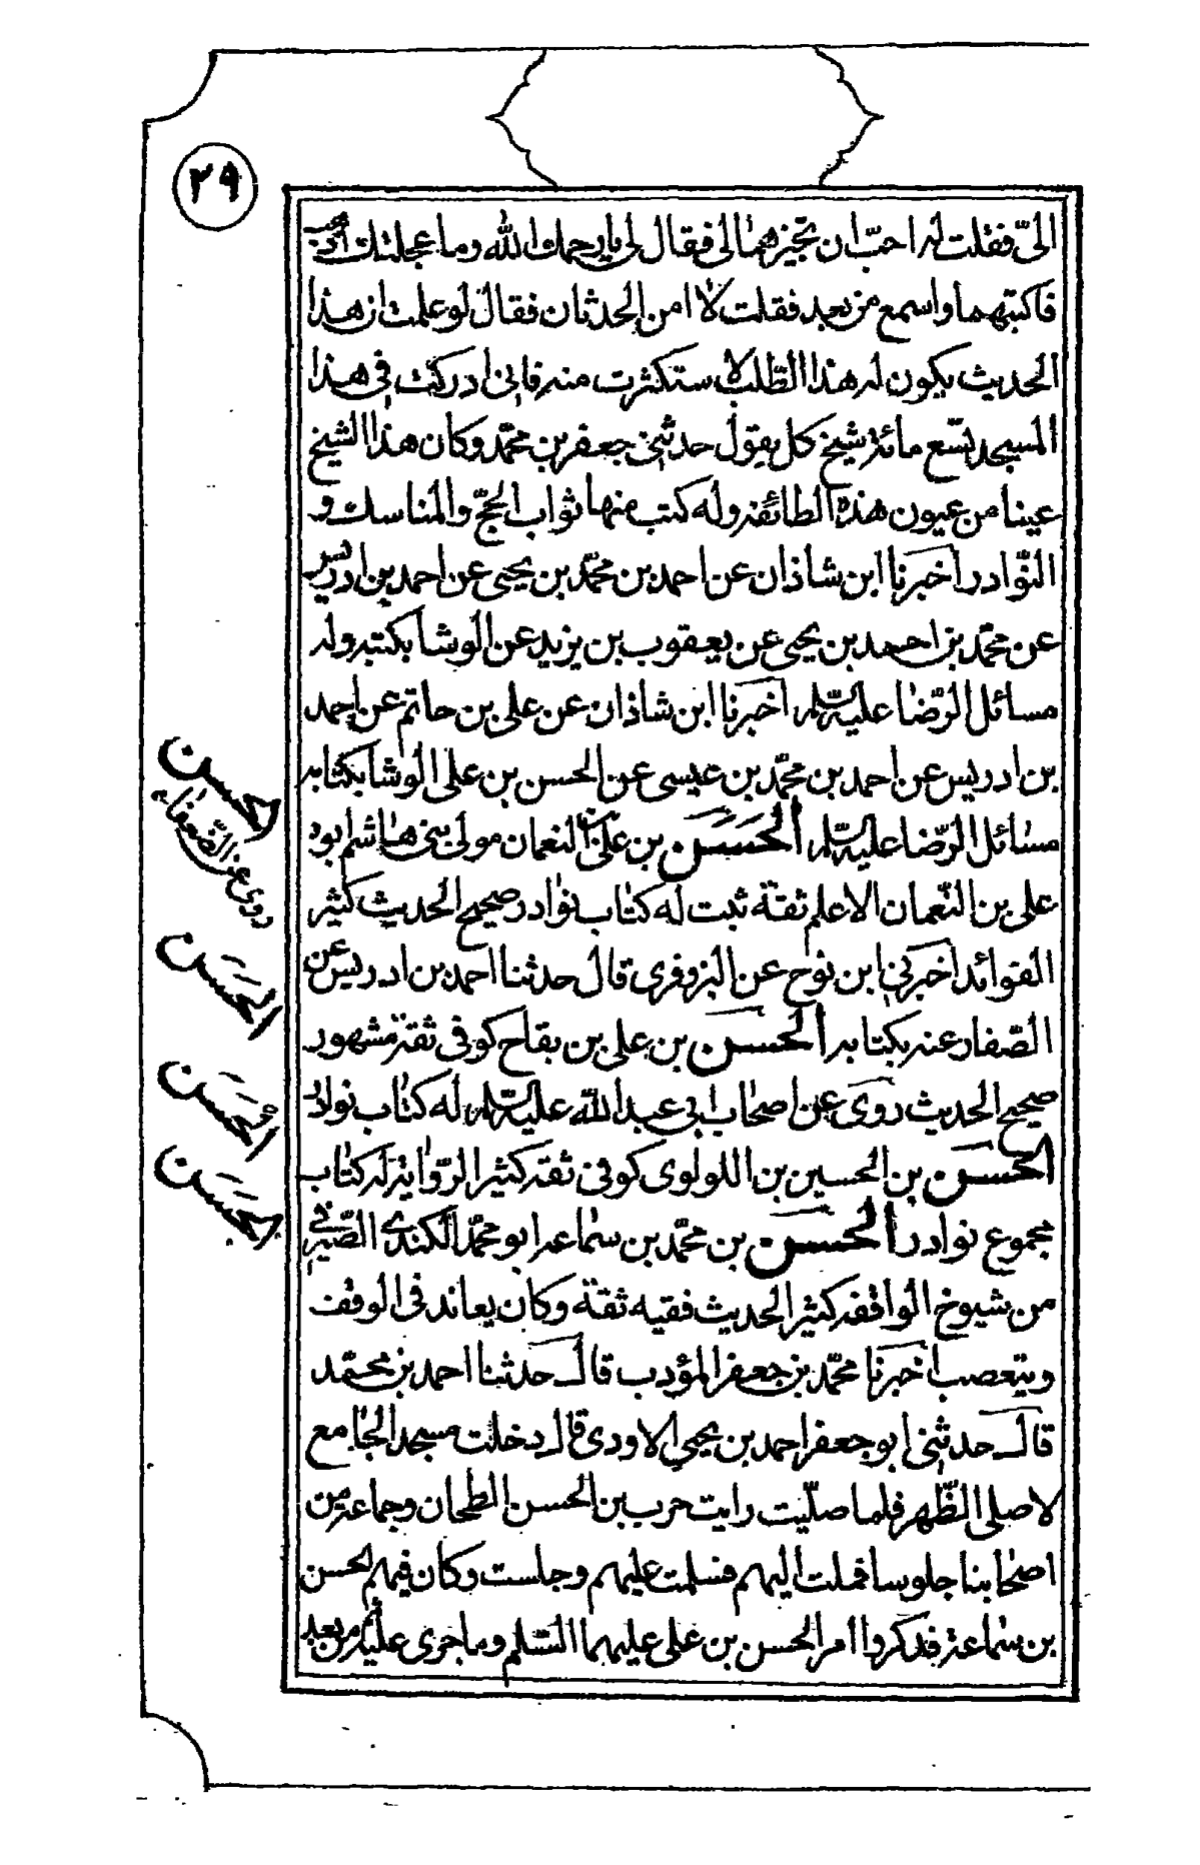 ٢٩
الىّ فقلت له احبّ ان تجيزهما لى فقال لى يا رحمك الله وما عجلتك اذهب
فاكتبهما واسمع من بعد فقلت لا امن الحدثان فقال لو علمت ان هذا
الحديث يكون له هذا الطّلب لاستكثرت منه فانى ادركت فى هذا
المسجد تسع مائة شيخ كل يقول حدثنى جعفر بن محمّد وكان هذا الشيخ
عينا من عيون هذه الطائفة وله كتب منها ثواب الحجّ والمناسك و
النّوادر اخبرنا ابن شاذان عن احمد بن محمّد بن يحيى عن احمد بن ادريس
عن محمّد بن احمد بن يحيى عن يعقوب بن يزيد عن الوشا بكتبه وله
مسائل الرّضا عليه السّلم اخبرنا ابن شاذان عن على بن حاتم عن احمد
بن ادريس عن احمد بن محمّد بن عيسى عن الحسن بن على الوشا بكتابه
مسائل الرّضا عليه السّلم الحَسَن بن على بن النعمان مولى بنى هاشم ابوه
على بن النّعمان الاعلم ثقة ثبت له كتاب نوادر صحيح الحديث كثير
الفوائد اخبرنى ابن نوح عن البزوفرى قال حدثنا احمد بن ادريس عن
الصّفار عنه بكتابه الحسن بن على بن بقاح كوفى ثقة مشهور
صحيح الحديث روى عن اصحاب ابى عبد الله عليه السّلم له كتاب نوادر
الحسن بن الحسين بن اللولوى كوفى ثقة كثير الرّواية له كتاب
مجموع نوادر الحسن بن محمّد بن سماعه ابو محمّد الكندى الصّيرفى
من شيوخ الواقفه كثير الحديث فقيه ثقة وكان يعاند فى الوقف
ويتعصب اخبرنا محمّد بن جعفر المؤدب قال حدثنا احمد بن محمّد
قال حدثنى ابو جعفر احمد بن يحيى الاودى قال دخلت مسجد الجامع
لاصلى الظّهر فلما صلّيت رايت حرب بن الحسن الطحان وجماعة من
اصحابنا جلوسا فملت اليهم فسلمت عليهم وجلست وكان فيهم الحسن
بن سماعة فذكروا امر الحسن بن على عليهما السّلم وما جرى عليه من بعد
الحسن
روى عن الضّعفاء
الحَسَن
الحَسَن
الحَسَن